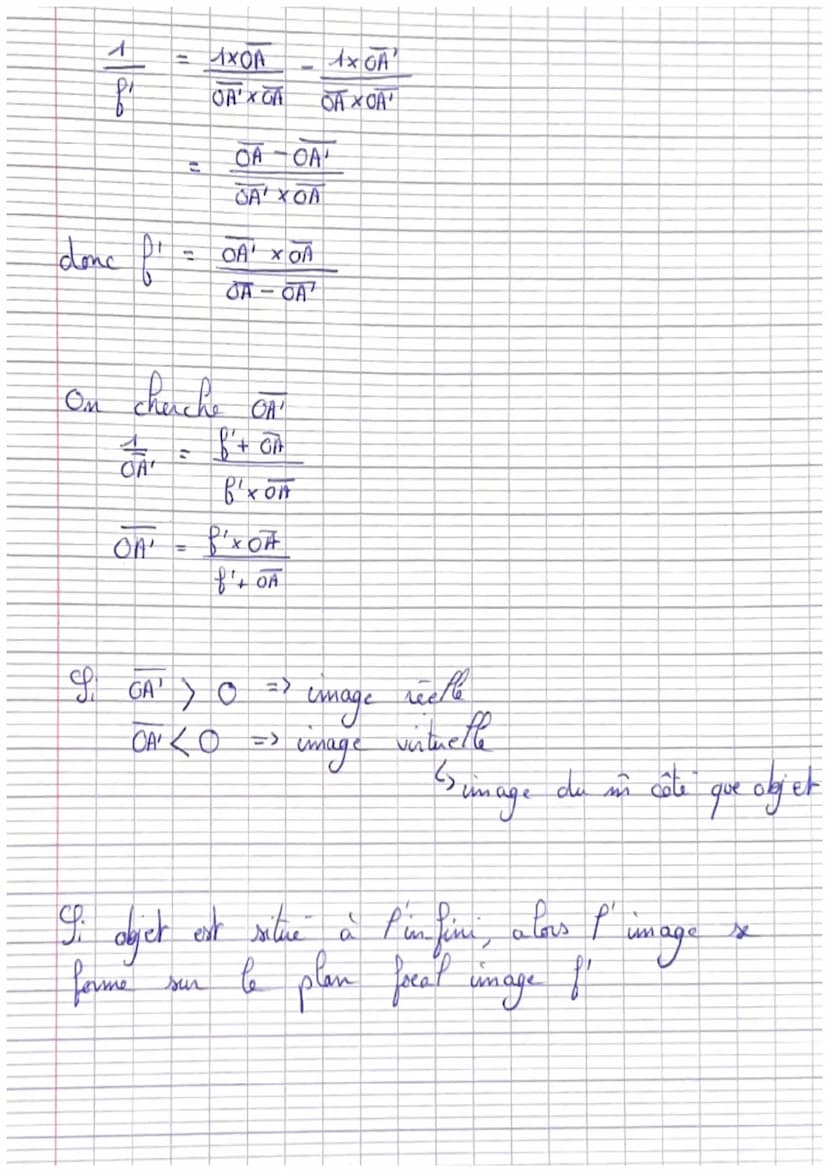 1/f' = (1×O̅A̅)/(O̅A̅'×O̅A̅) - (1×O̅A̅')/(O̅A̅×O̅A̅')
= (O̅A̅ - O̅A̅')/(O̅A̅'×O̅A̅)
donc f' = (O̅A̅'×O̅A̅)/(O̅A̅ - O̅A̅')
On cherche O̅A̅'
1/O̅A̅' = (f' + O̅A̅)/(f'×O̅A̅)
O̅A̅' = (f'×O̅A̅)/(f' + O̅A̅)
Si O̅A̅' > 0 => image réelle
O̅A̅' < 0 => image virtuelle
↳ image du m̂ côté que objet
Si objet est situé à l'infini, alors l'image se
forme sur le plan focal image f'